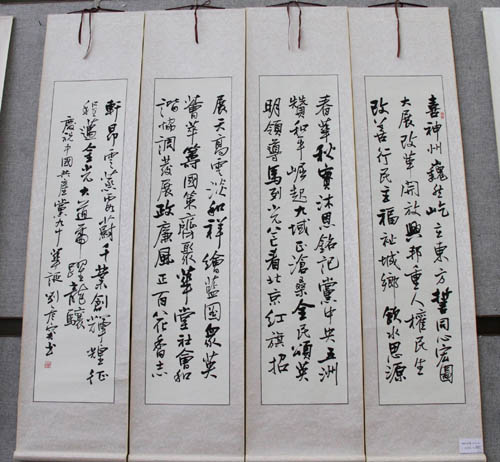 喜神州巍然屹立东方誓同心宏图
大展改革開放興邦重人權民生
改善行民主福祉城鄉飲水思源
春華秋實沐恩銘記黨中央五洲
贊和平崛起九域正滄桑全民頌英
明領導馬列光芒看北京紅旗招
展天高雲淡和祥繪藍圖众英
薈萃籌國策齊聚華堂社會和
諧協調發展政廉風正百花香志
軒昂雲蒸霞蔚千業創輝煌征
程蓝金光大道奮躍龍驤
慶祝中國共產黨九十華誕